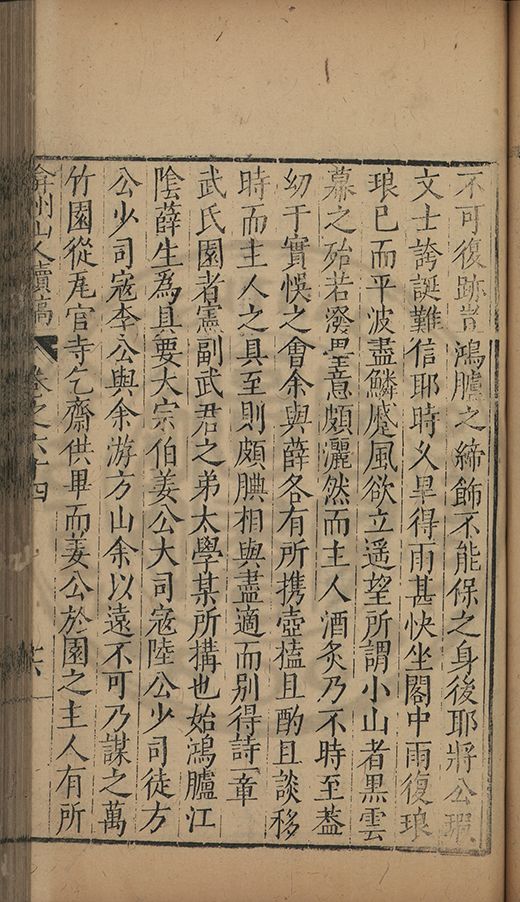 不可復跡豈鴻臚之締飾不能保之身後耶將公瑕
文士誇誕難信耶時久旱得雨甚快坐閣中雨復琅
琅已而平波盡鱗蹙風欲立遥望所謂小山者黒雲
幕之殆若潑墨意頗灑然而主人酒炙乃不時至葢
㓜于實悞之會余與薛各有所携壺榼且酌且談移
時而主人之具至則頗腆相與盡適而别得詩一章
武氏園者憲副武君之弟太學某所搆也始鴻臚江
陰薛生為具要大宗伯姜公大司寇陸公少司徒方
公少司寇李公與余游方山余以遠不可乃謀之萬
竹園從瓦官寺乞齋供畢而姜公於園之主人有所
弇州山人續稿 卷之六十四 十六